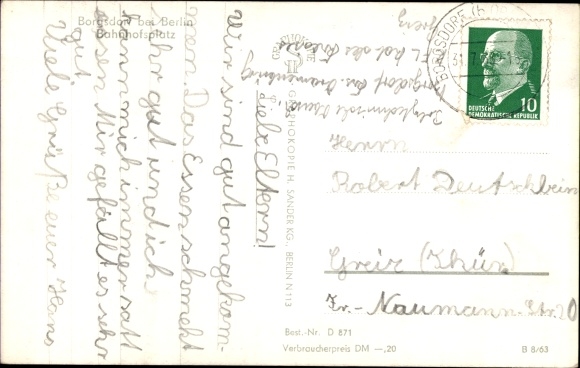 Borgsdorf bei Berlin
Bahnhofsplatz
Liebe Eltern!
Wir sind gut angekom-
men. Das Essen schmeckt
sehr gut und ich
kann mich immer satt
essen. Mir gefällt es sehr
gut.
Viele Grüße euer Hans
PHOTOKOPIE H. SANDER KG., BERLIN N 113
BORGSDORF
31.7.
DEUTSCHE
DEMOKRATISCHE REPUBLIK
10
Herrn
Robert Deutschbein
Greiz (Thür)
Fr.-Naumann-Str. 20
Best.-Nr. D 871
Verbraucherpreis DM —,20
B 8/63